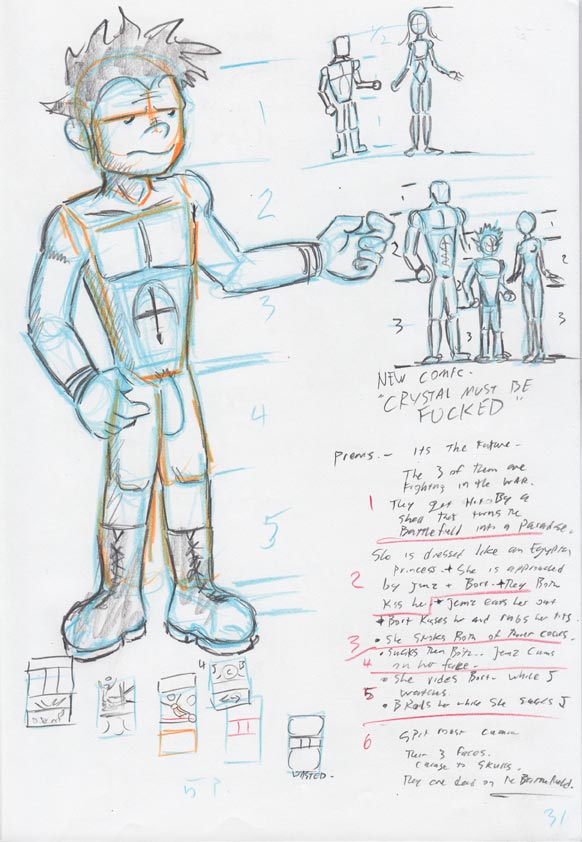 1/2
1
2
3
4
5
1
2
3
2
3
NEW COMIC-
"CRYSTAL MUST BE
FUCKED"
Its The Future-
The 3 of them are
Fighting in the WAR.
1 They get Hit By a
shell that turns the
Battlefield into a Paradise.
She is dressed like an Egyptian
2 princess. + She is approached
by Jemz + Bort. + They Both
Kiss her + Jemz eats her out
+ Bort Kisses her and rubs her tits.
3 • She Strokes Both of their cocks.
• Sucks Them Both.. Jemz Cums
4 on her face.
• She rides Bort while J
5 watches.
• B while She Sucks J
6 Spit roast
Their 3 Faces.
Change to Skulls.
They are dead on the Battlefield.
WASTED.
5 P.
31